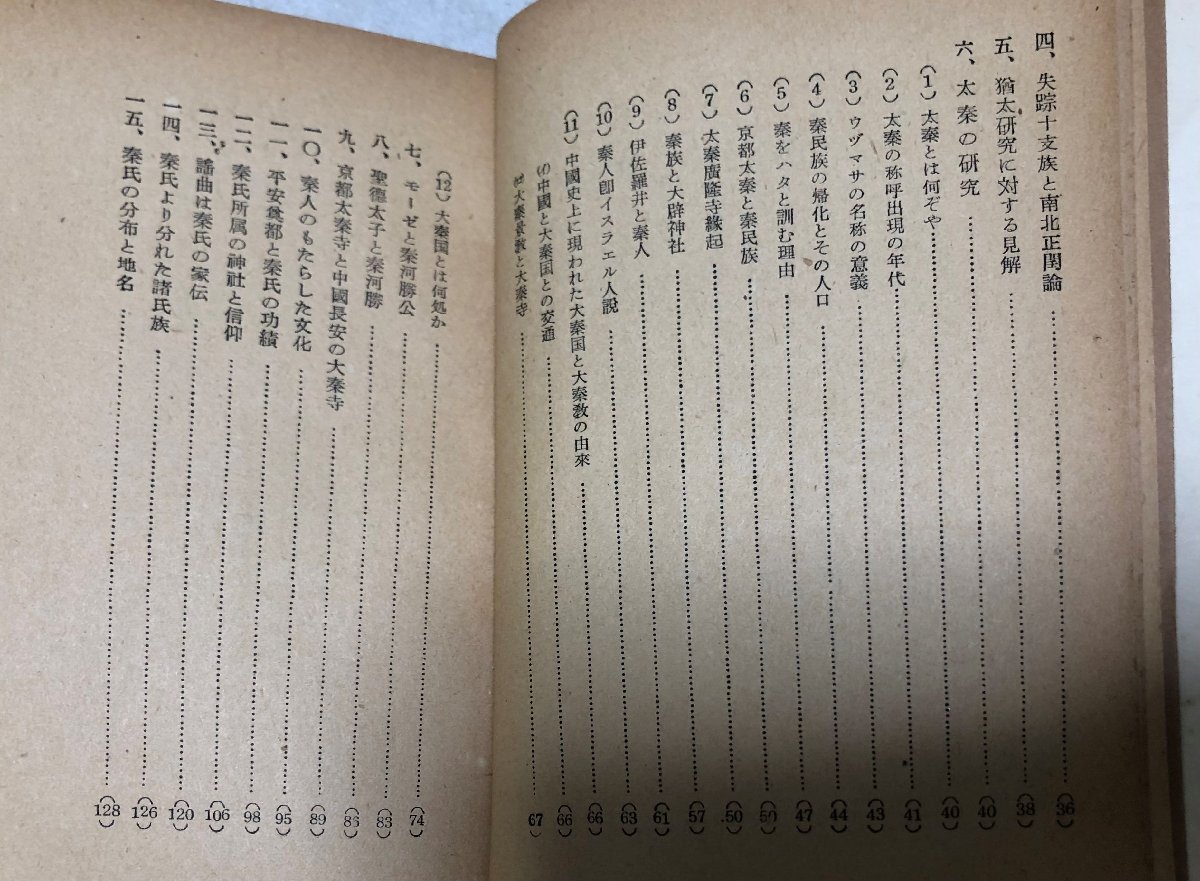 四、失踪十支族と南北正閏論……(36)
五、猶太研究に対する見解……(38)
六、太秦の研究……(40)
(1)太秦とは何ぞや……(40)
(2)太秦の称呼出現の年代……(41)
(3)ウヅマサの名称の意義……(43)
(4)秦民族の帰化とその人口……(44)
(5)秦をハタと訓む理由……(47)
(6)京都太秦と秦民族……(50)
(7)太秦廣隆寺縁起……(50)
(8)秦族と大辟神社……(57)
(9)伊佐羅井と秦人……(61)
(10)秦人卽イスラエル人説……(63)
(11)中國史上に現われた大秦国と大秦教の由來……(66)
(イ)中國と大秦国との交通……(66)
(ロ)大秦景教と大秦寺……(67)
(12)大秦国とは何処か……(74)
七、モーゼと秦河勝公……(83)
八、聖徳太子と秦河勝……(86)
九、京都太秦寺と中國長安の大秦寺……(89)
一〇、秦人のもたらした文化……(95)
一一、平安奠都と秦氏の功績……(98)
一二、秦氏所属の神社と信仰……(106)
一三、謡曲は秦氏の家伝……(120)
一四、秦氏より分れた諸氏族……(126)
一五、秦氏の分布と地名……(128)